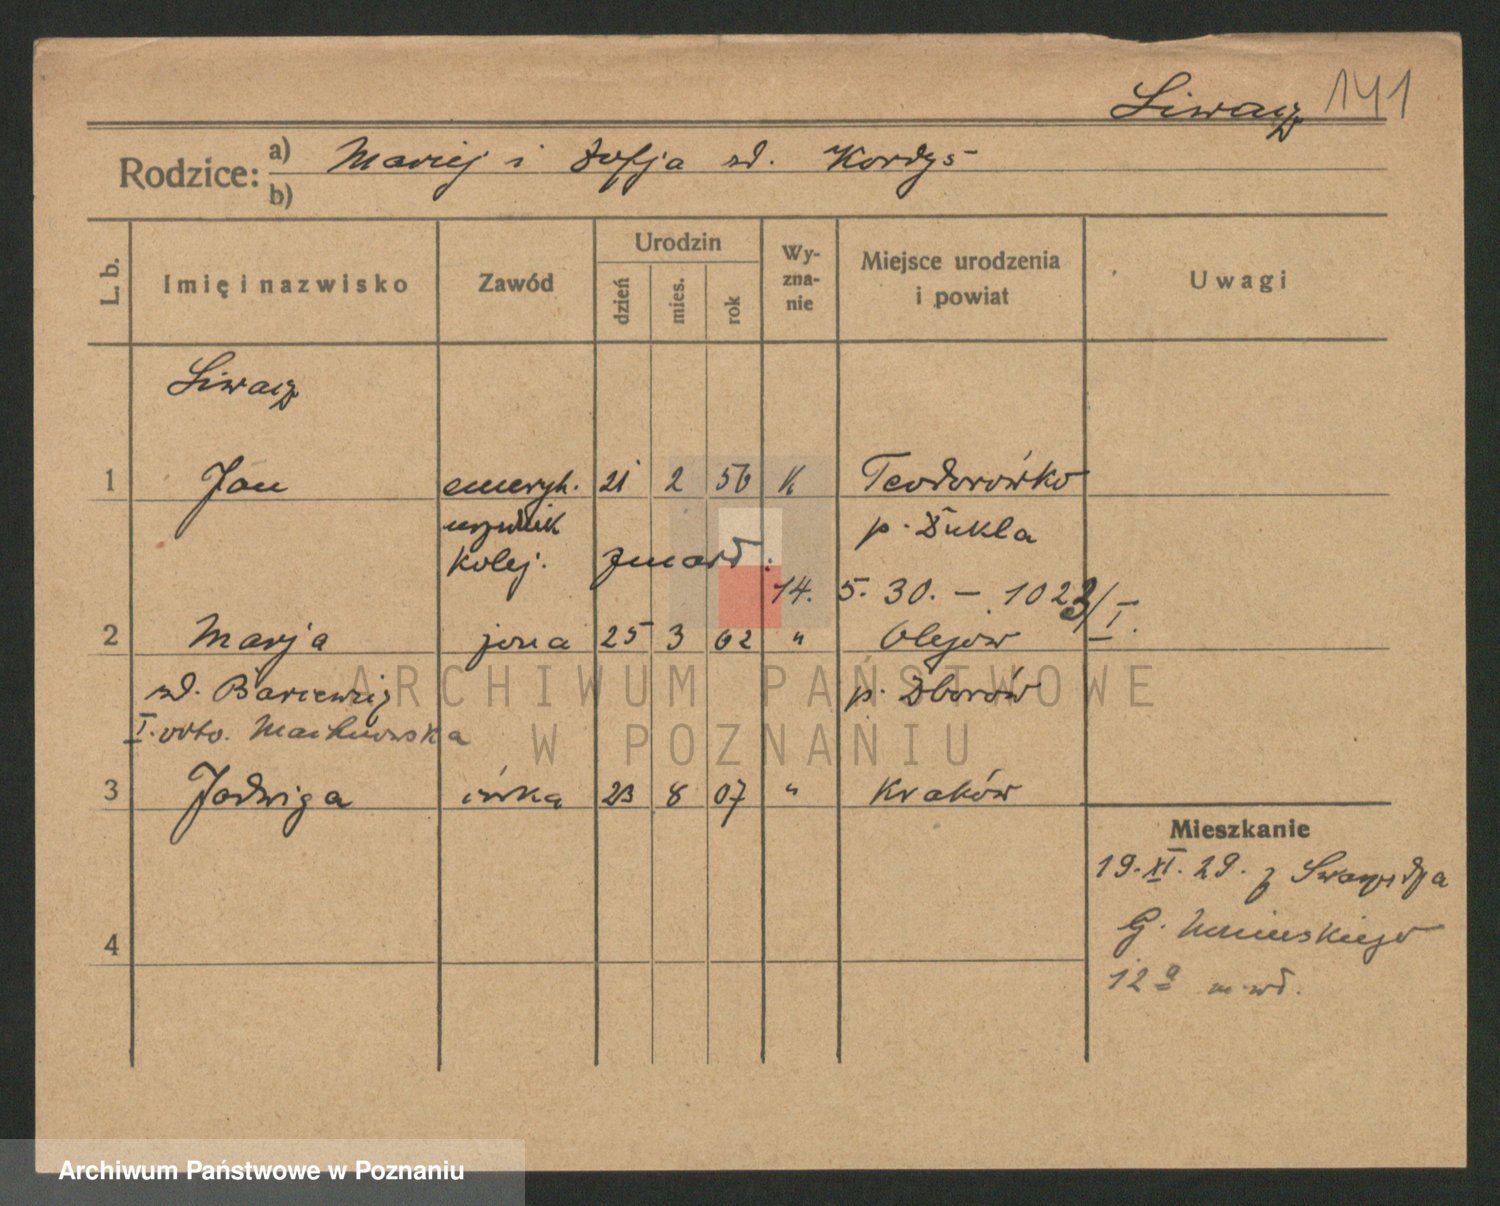 Siwacz 141
Rodzice: a) Maciej i Zofja zd. Kordyś
b)
L. b. Imię i nazwisko Zawód Urodzin dzień mies. rok Wyznanie Miejsce urodzenia i powiat Uwagi
Siwacz
1 Jan emeryt. 21 2 56 K Teodorówko
urzędnik p. Dukla
kolej. zmarł:
14. 5. 30. – 1023/I.
2 Marja żona 25 3 62 " Olejow
zd. Barcewicz p. Zborów
I. voto. Machnowska
3 Jadwiga córka 23 8 07 " Kraków
Mieszkanie
19. XI. 29. z Swarzędza
G. Umińskiego
4
12a m. wł.
ARCHIWUM PAŃSTWOWE
W POZNANIU
Archiwum Państwowe w Poznaniu